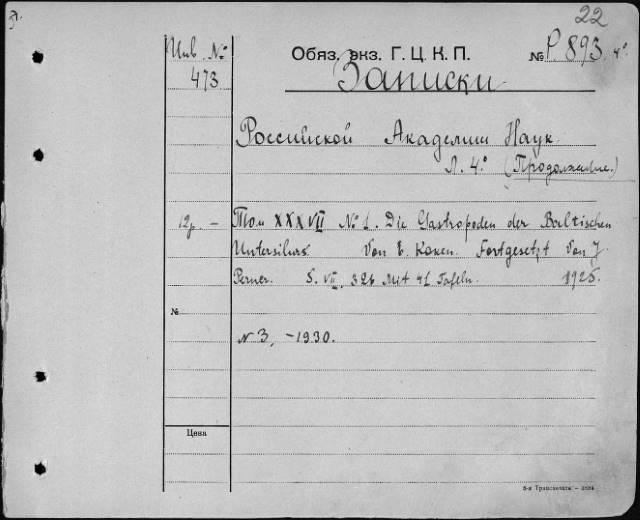 22
Инв. №
Обяз. экз. Г. Ц. К. П. № Р.893 4°
473
Записки
Российской Академии Наук
Л. 4° (Продолжение.)
12р. — Том XXXVII № 1. Die Gastropoden der Baltischen
Untersilurs. Von E. Koken. Fortgesetzt Von J.
Perner. S. VII, 326 Mit 41 Tafeln. 1925.
№
N 3, — 1930.
Цена